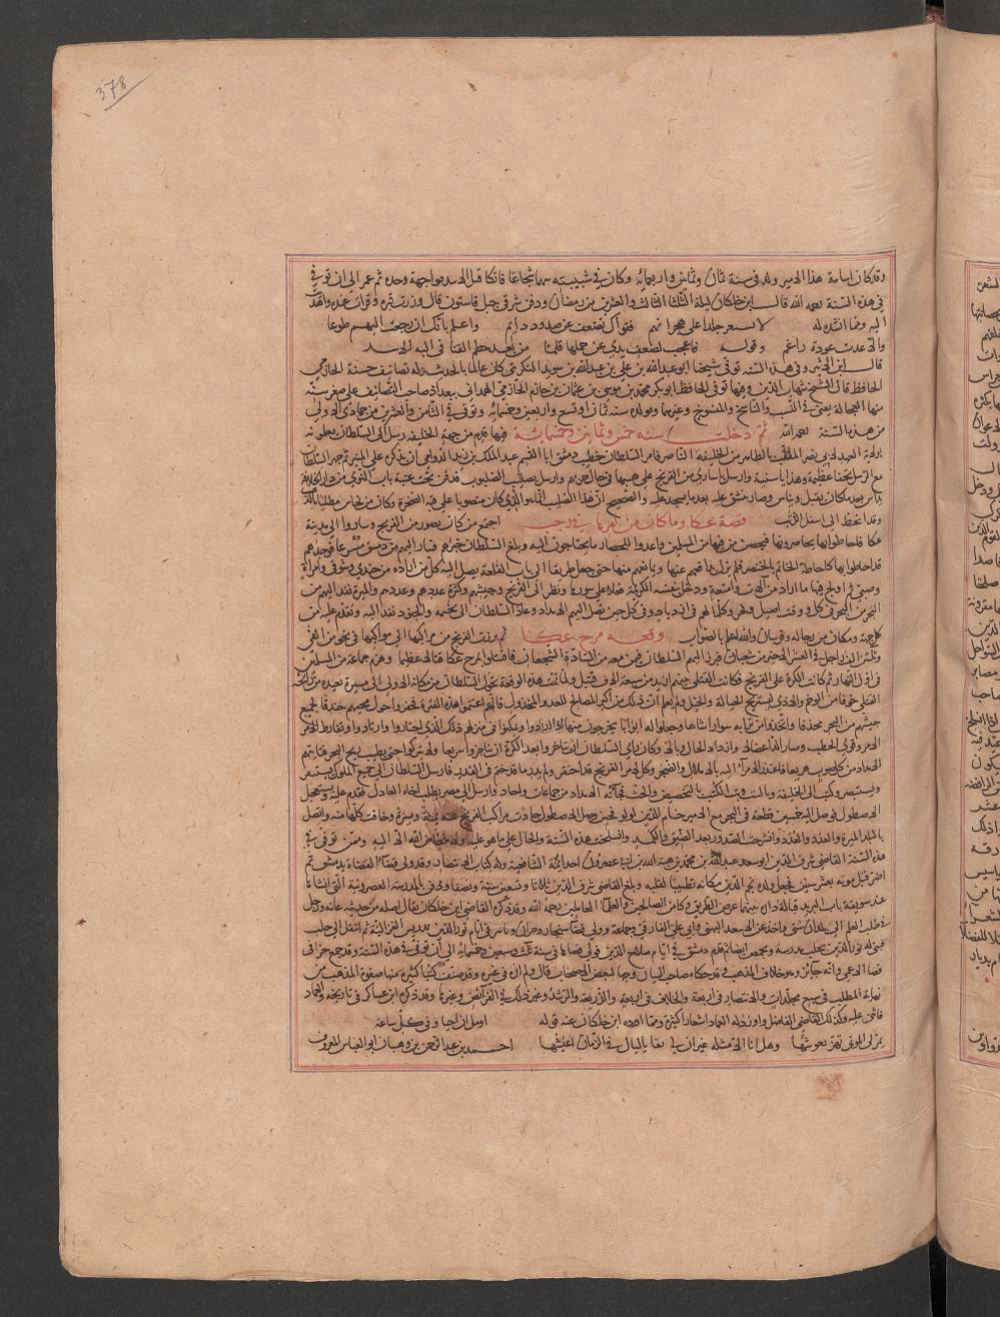 378
وقد كان اسامة هذا الامير ولد في سنة ثمان وثمانين واربعمائة وكان في شبيبته شهما شجاعا فاتكا قتل الاسد مواجهة وحده ثم عمر الى ان توفي في
هذه السنة رحمه الله قال ابن خلكان ليلة الثلثا الثالث والعشرين من رمضان ودفن شرقي جبل قاسيون قال وزرت قبره وقرات عنده واهديت
اليه ومما انشده له لا تستعر جلدا على هجرانهم فقواك تضعف عن صدود دايم واعلم بانك ان رجعت اليهم طوعا
والا عدت عودة راغم وقوله فاعجب لضعف يدي عن حملها قلما من بعد حطم القنا في لبة الاسد
قال ابن الاثير وفي هذه السنة توفي شيخنا ابو عبد الله بن علي بن عبد الله بن سويد التكريتي كان عالما بالحديث وله تصانيف حسنة الحازمي
الحافظ قال الشيخ شهاب الدين وفيها توفي الحافظ ابو بكر محمد بن موسى بن عثمان بن حازم الحازمي الهمداني ببغداد صاحب التصانيف على صغر سنه
منها العجالة يعني في النسب والناسخ والمنسوخ وغيرهما ومولده سنة ثمان او تسع واربعين وخمسمائة وتوفي في الثامن والعشرين من جمادى الاولى
من هذه السنة رحمه الله ثم دخلت سنة خمس وثمانين وخمسمائة فيها قدم من جهة الخليفة رسل الى السلطان يعلمونه
بولاية العهد لابي نصر الملقب بالظاهر من الخليفة الناصر فامر السلطان خطيب دمشق ابا القسم عبد الملك بن زيد الدولعي ان يذكره على المنبر ثم جهز السلطان
مع الرسل تحفا عظيمة وهدايا سنية وارسل باسارى من الفرنج على هيبهم في حال حربهم وارسل بصليب الصلبوت فدفن تحت عتبة باب النوى من دار الخلافة
يداس بعد ما كان يقبل ويباس وصار يبصق عليه بعد ما يسجد عليه والصحيح ان هذا الصليب انما هو الذي كان منصوبا على قبة الصخرة وكان من نحاس مطليا بالذهب
وقد انحط الى اسفل الرتب قصة عكا وما كان من امرها في رجب اجتمع من كان بصور من الفرنج وساروا الى مدينة
عكا فاحاطوا بها يحاصرونها فتحصن من فيها من المسلمين واعدوا للحصار ما يحتاجون اليه وبلغ السلطان خبرهم فسار اليهم من دمشق مسرعا فوجدهم
قد احاطوا بها كاحاطة الخاتم بالخنصر فلم يزل يدافعهم عنها ويمانعهم منها حتى جعل طريقا الى باب القلعة يصل اليه كل من اراده من جندي وسوقي وامراة
وصبي ثم اولج فيها ما اراد من الالات وامتعة ودخل بنفسه الكريمة فعلا على سورها ونظر الى الفرنج وجيشهم وكثرة عددهم وعددهم والميرة تفد اليهم من
البحر في كل وقت وكلما لهم في ازدياد وفي كل حين تصل اليهم الامداد وعاد السلطان الى مخيمه والجنود تفد اليه وتقدم عليه من
كل جهة ومكان من رجالة وفرسان والله اعلم بالصواب وقعة مرج عكا ثم برزت الفرنج من مراكبها الى مواكبها في نحو من الفي
وثلثين الف راجل في العشر الاخير من شعبان فبرز اليهم السلطان فيمن معه من السادة الشجعان فاقتتلوا بمرج عكا قتالا عظيما وهزم جماعة من المسلمين
في اول النهار ثم كانت الكرة على الفرنج فكانت القتلى بينهم ازيد من سبعة الاف قتيل ولما تمت هذه الوقعة تحول السلطان من مكانه الاول الى مسيرة بعيده من رائحة
القتلى خوفا من الوخم والاذى ليستريح الخيالة والخيل ولم يعلم ان ذلك من اكبر المصالح للعدو المخذول فانهم اغتنموا هذه الفترة فحفروا حول مخيمهم خندقا لجميع
جيشهم من البحر محدقا واتخذوا من ترابه سورا شاهقا وجعلوا له ابوابا يخرجون منها اذا ارادوا وتمكنوا في منزلهم ذلك الذي اختاروا وارتادوا
الامر وقوي الخطب وصار الداء عضالا وازداد الحال وبالا وكان راى السلطان ان يناجزوا بعد الكرة سريعا ولا يتركوا حتى يطيب ريح البحر فتاتيهم
الامداد من كل صوب سريعا فاعتذر الامراء اليه بالملال والضجر وكل لامر الفرنج قد احتقر ولم يدر ما قد حتم في القدر فارسل السلطان الى جميع الملوك يستنفر
ويستنصر وكتب الى الخليفة بالبث وبث الكتب بالتحضيض والحث فجاته الامداد من جماعات واحاد وارسل الى مصر يطلب اخاه العادل يقدم عليه ويستعجل
الاسطول فوصل اليه خمسين قطعة في البحر مع الامير حسام الدين لولو فحين وصل الاسطول حادت مراكب الفرنج عنه يمنة ويسرة وخافت كلها منه واتصل
بالبلد الميرة والعدد والعدد وانشرحت الصدور بعد الضيق والكمد وانسلخت هذه السنة والحال على ما هو عليه ولا ملجا من الله الا اليه وممن توفي في
هذه السنة القاضي شرف الدين ابو سعد عبد الله بن محمد بن هبة الله بن ابي عصرون احد ائمة الشافعية وله كتاب الانتصاف وقد ولي قضا القضاة بدمشق ثم
اضر قبل موته بعشر سنين فجعل ولده نجم الدين مكانه تطييبا لقلبه وبلغ القاضي شرف الدين ثلاثا وتسعين سنة ونصفا ودفن بالمدرسة العصرونية التي انشاها
عند سويقة باب البريد قبالة داره بينهما عرض الطريق وكان من الصالحين والعلماء العاملين رحمه الله وقد ذكره القاضي ابن خلكان فقال اصله من حديثة عانه ورحل
في طلب العلم الى بلدان شتى واخذ عن اسعد الميهني وابي علي الفارقي وجماعة وولي قضا سنجار وحران وباشر في ايام نور الدين تدريس الغزالية ثم انتقل الى حلب
فبنى له نور الدين بحلب مدرسة وبحمص ايضا ثم قدم دمشق في ايام صلاح الدين فولي قضاها في سنة ثلث وسبعين وخمسمائة الى ان توفي في هذه السنة وقد جمع جزا في
قضا الاعمى وانه جائز وهو خلاف المذهب وقد حكاه صاحب البيان وجها لبعض الاصحاب قال ولم اره في غيره وقد صنف كتبا كثيرة منها صفوة المذهب من
نهاية المطلب في سبع مجلدات والانتصار في اربعة والخلاف في اربعة والذريعة والمرشد وغير ذلك في الفرائض وغيرها وقد ذكره ابن عساكر في تاريخه والعماد
فاثنى عليه وكذلك القاضي الفاضل واورد له العماد اشعارا كثيرة ومما اورده ابن خلكان عنه قوله اومل ان احيا وفي كل ساعة
تمر لي الموتى تهز نعوشها وهل انا الا مثلهم غير ان لي بقايا ليال في الزمان اعيشها احمد بن عبد الرحمن بن وهبان ابو العباس المعروف